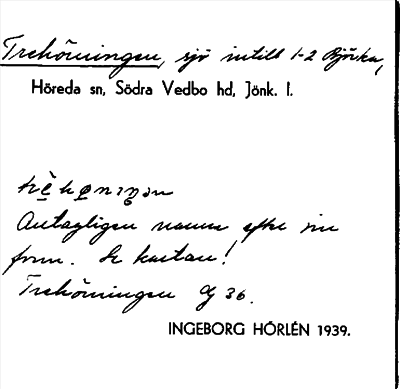 Trehörningen, sjö intill 1-2 Björka,
Höreda sn, Södra Vedbo hd, Jönk. l.
Antagligen namn efter sin
form. Se kartan!
Trehörningen Gg 36.
INGEBORG HÖRLÉN 1939.